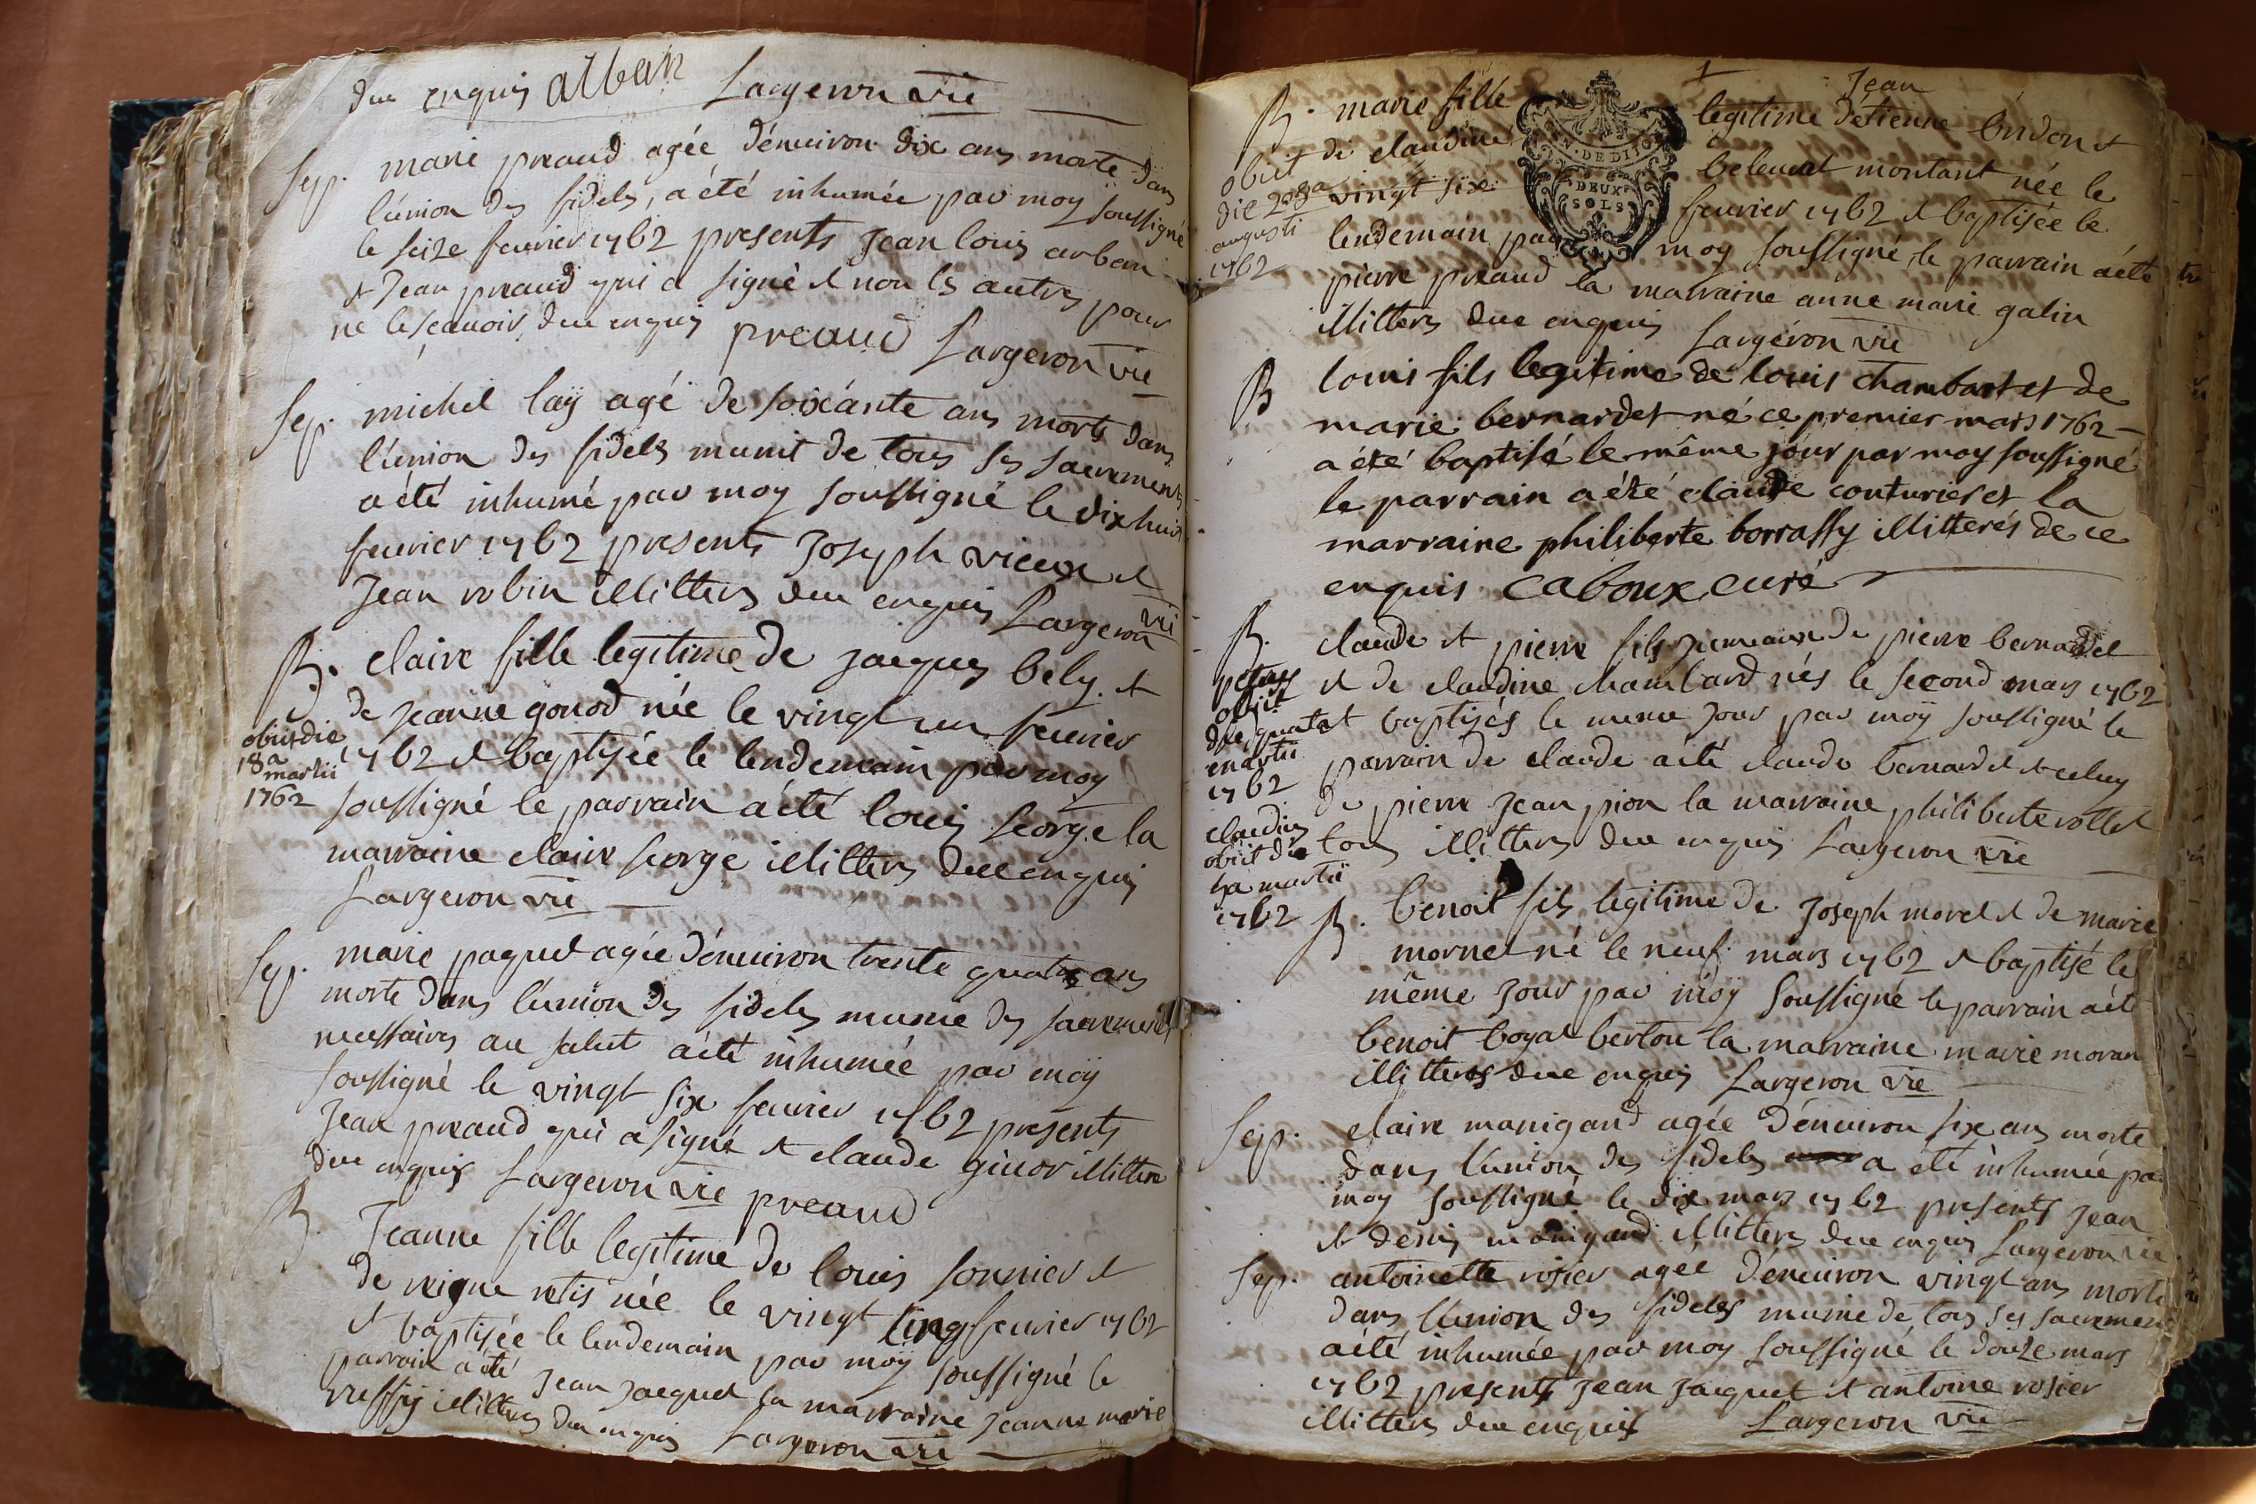 due enquis alban Largeron vic
Sep. marie preaud agée d'énuiron dix ans morte dans
l'union des fidels, a été inhumée par moy soussigné
le seize feurier 1762 presents Jean louis arban
et Jean preaud qui a signé et non les autres pour
ne le sçauoir, due enquis preaud Largeron vic
Sep. michel laÿ agé de soixante ans morts dans
l'union des fidels munit de tous ses sacrements
a été inhumé par moy soussigné le dixhuit
feurier 1762 presents Joseph vieux et
Jean robin illitters due enquis Largeron vic
B. claire fille legitime de jacques bely et
de jeanne gonod née le vingt un feurier
obiit die
18a martii
1762
1762 et baptisée le lendemain par moy
soussigné le parrain a été louis george la
marraine claire george illitters due enquis
Largeron vic
Sep. marie paquet agée d'énuiron trente quatre ans
morte dans l'union des fidels munie des sacrements
necessaires au salut a été inhumée par moÿ
soussigné le vingt six feurier 1762 presents
Jean preaud qui a signé et claude giuor illittere
due enquis Largeron vic preaud
B. Jeanne fille legitime de louis sonnier et
de reigne retis née le vingt cinq feurier 1762
et baptisée le lendemain par moÿ soussigné le
parrain a été Jean jacquet la marraine jeanne marie
ruffÿ illitters due enquis Largeron vic
1
GEN. DE DIJON
DEUX
SOLS
Jean
B. marie fille legitime d'étienne bridon et
de claudine beleurat montant née le
obiit
die 28a
augusti
1762
vingt six feurier 1762 et baptisée le
lendemain par moy soussigné, le parrain a été
pierre preaud la marraine anne marie galin
illitters due enquis Largeron vic
B louis fils legitime de louis chambart et de
marie bernardet né ce premier mars 1762
a été baptisé le même jour par moy soussigné
le parrain a été claude couturier et la
marraine philiberte borrassy illitterés de ce
enquis caboux, curé
B. claude et pierre fils jumeaux de pierre bernardet
et de claudine chambard nés le second mars 1762
et baptisés le meme jour par moÿ soussigné le
parrain de claude a été claude bernardet et celuy
de pierre jean pion la marraine philiberte rollet
tous illitters due enquis Largeron vic
petrus
obiit
die quarta
martii
1762
claudius
obiit die
5a martii
1762
B. benoit fils legitime de Joseph morel et de marie
mornet né le neuf mars 1762 et baptisé le
même jour par moÿ soussigné le parrain a été
benoit boyat berton la marraine marie moran
illitters due enquis Largeron vic
Sep. claire manigand agée d'énuiron six ans morte
dans l'union des fidels a été inhumée par
moy soussigné le dix mars 1762 presents jean
et denis manigand illitters due enquis Largeron vic
Sep. antoinette rosier agée d'énuiron vingt ans morte
dans l'union des fideles munie de tous ses sacremens
a été inhumée par moy soussigné le douze mars
1762 presents Jean Jacquet et antoine rosier
illitters due enquis Largeron vic